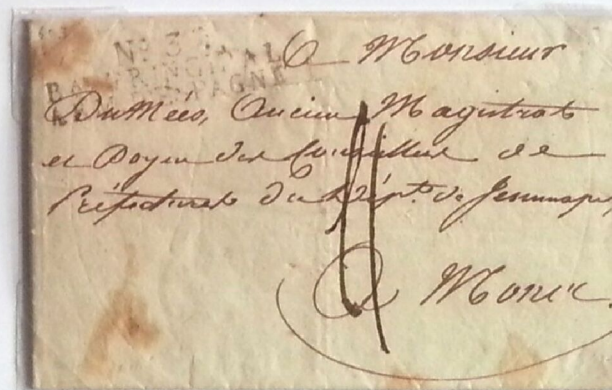 No 3
A Monsieur
DuMées, Ancien Magistrat
et Doyen des Conseillers de
Préfecture du Dépt. de Jemmape,
A Mons